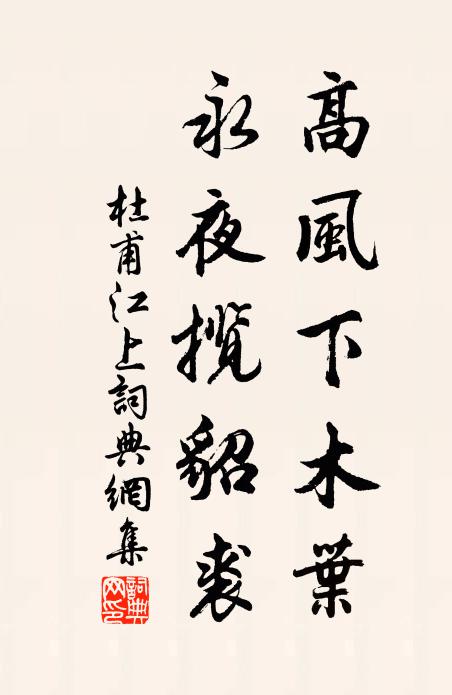 高風下木葉
永夜揽貂裘
杜甫江上詞典網集
詞典网印